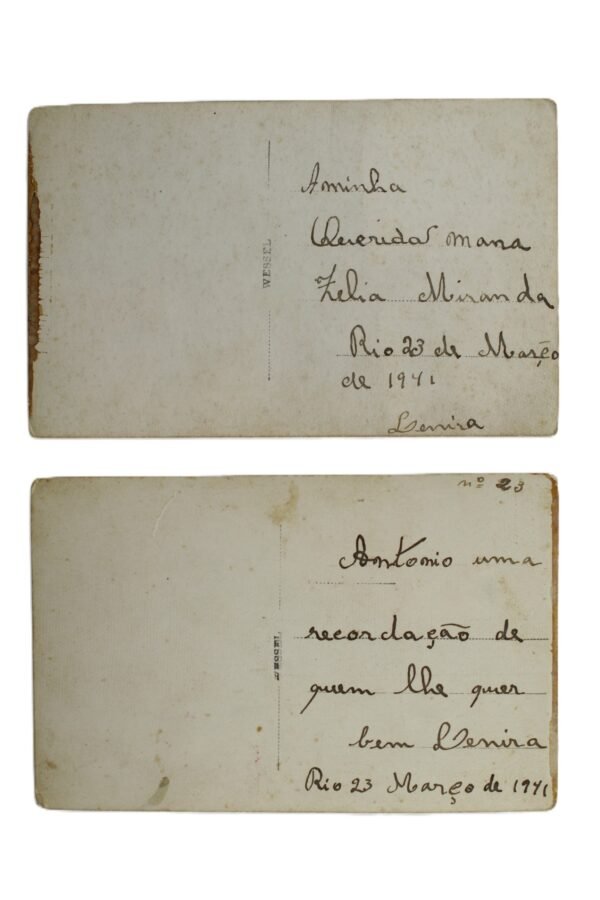 WESSEL
A minha
Querida mana
Zelia Miranda
Rio 23 de Março
de 1941
Lenira
nº 23
WESSEL
Antonio uma
recordação de
quem lhe quer
bem Lenira
Rio 23 Março de 1941